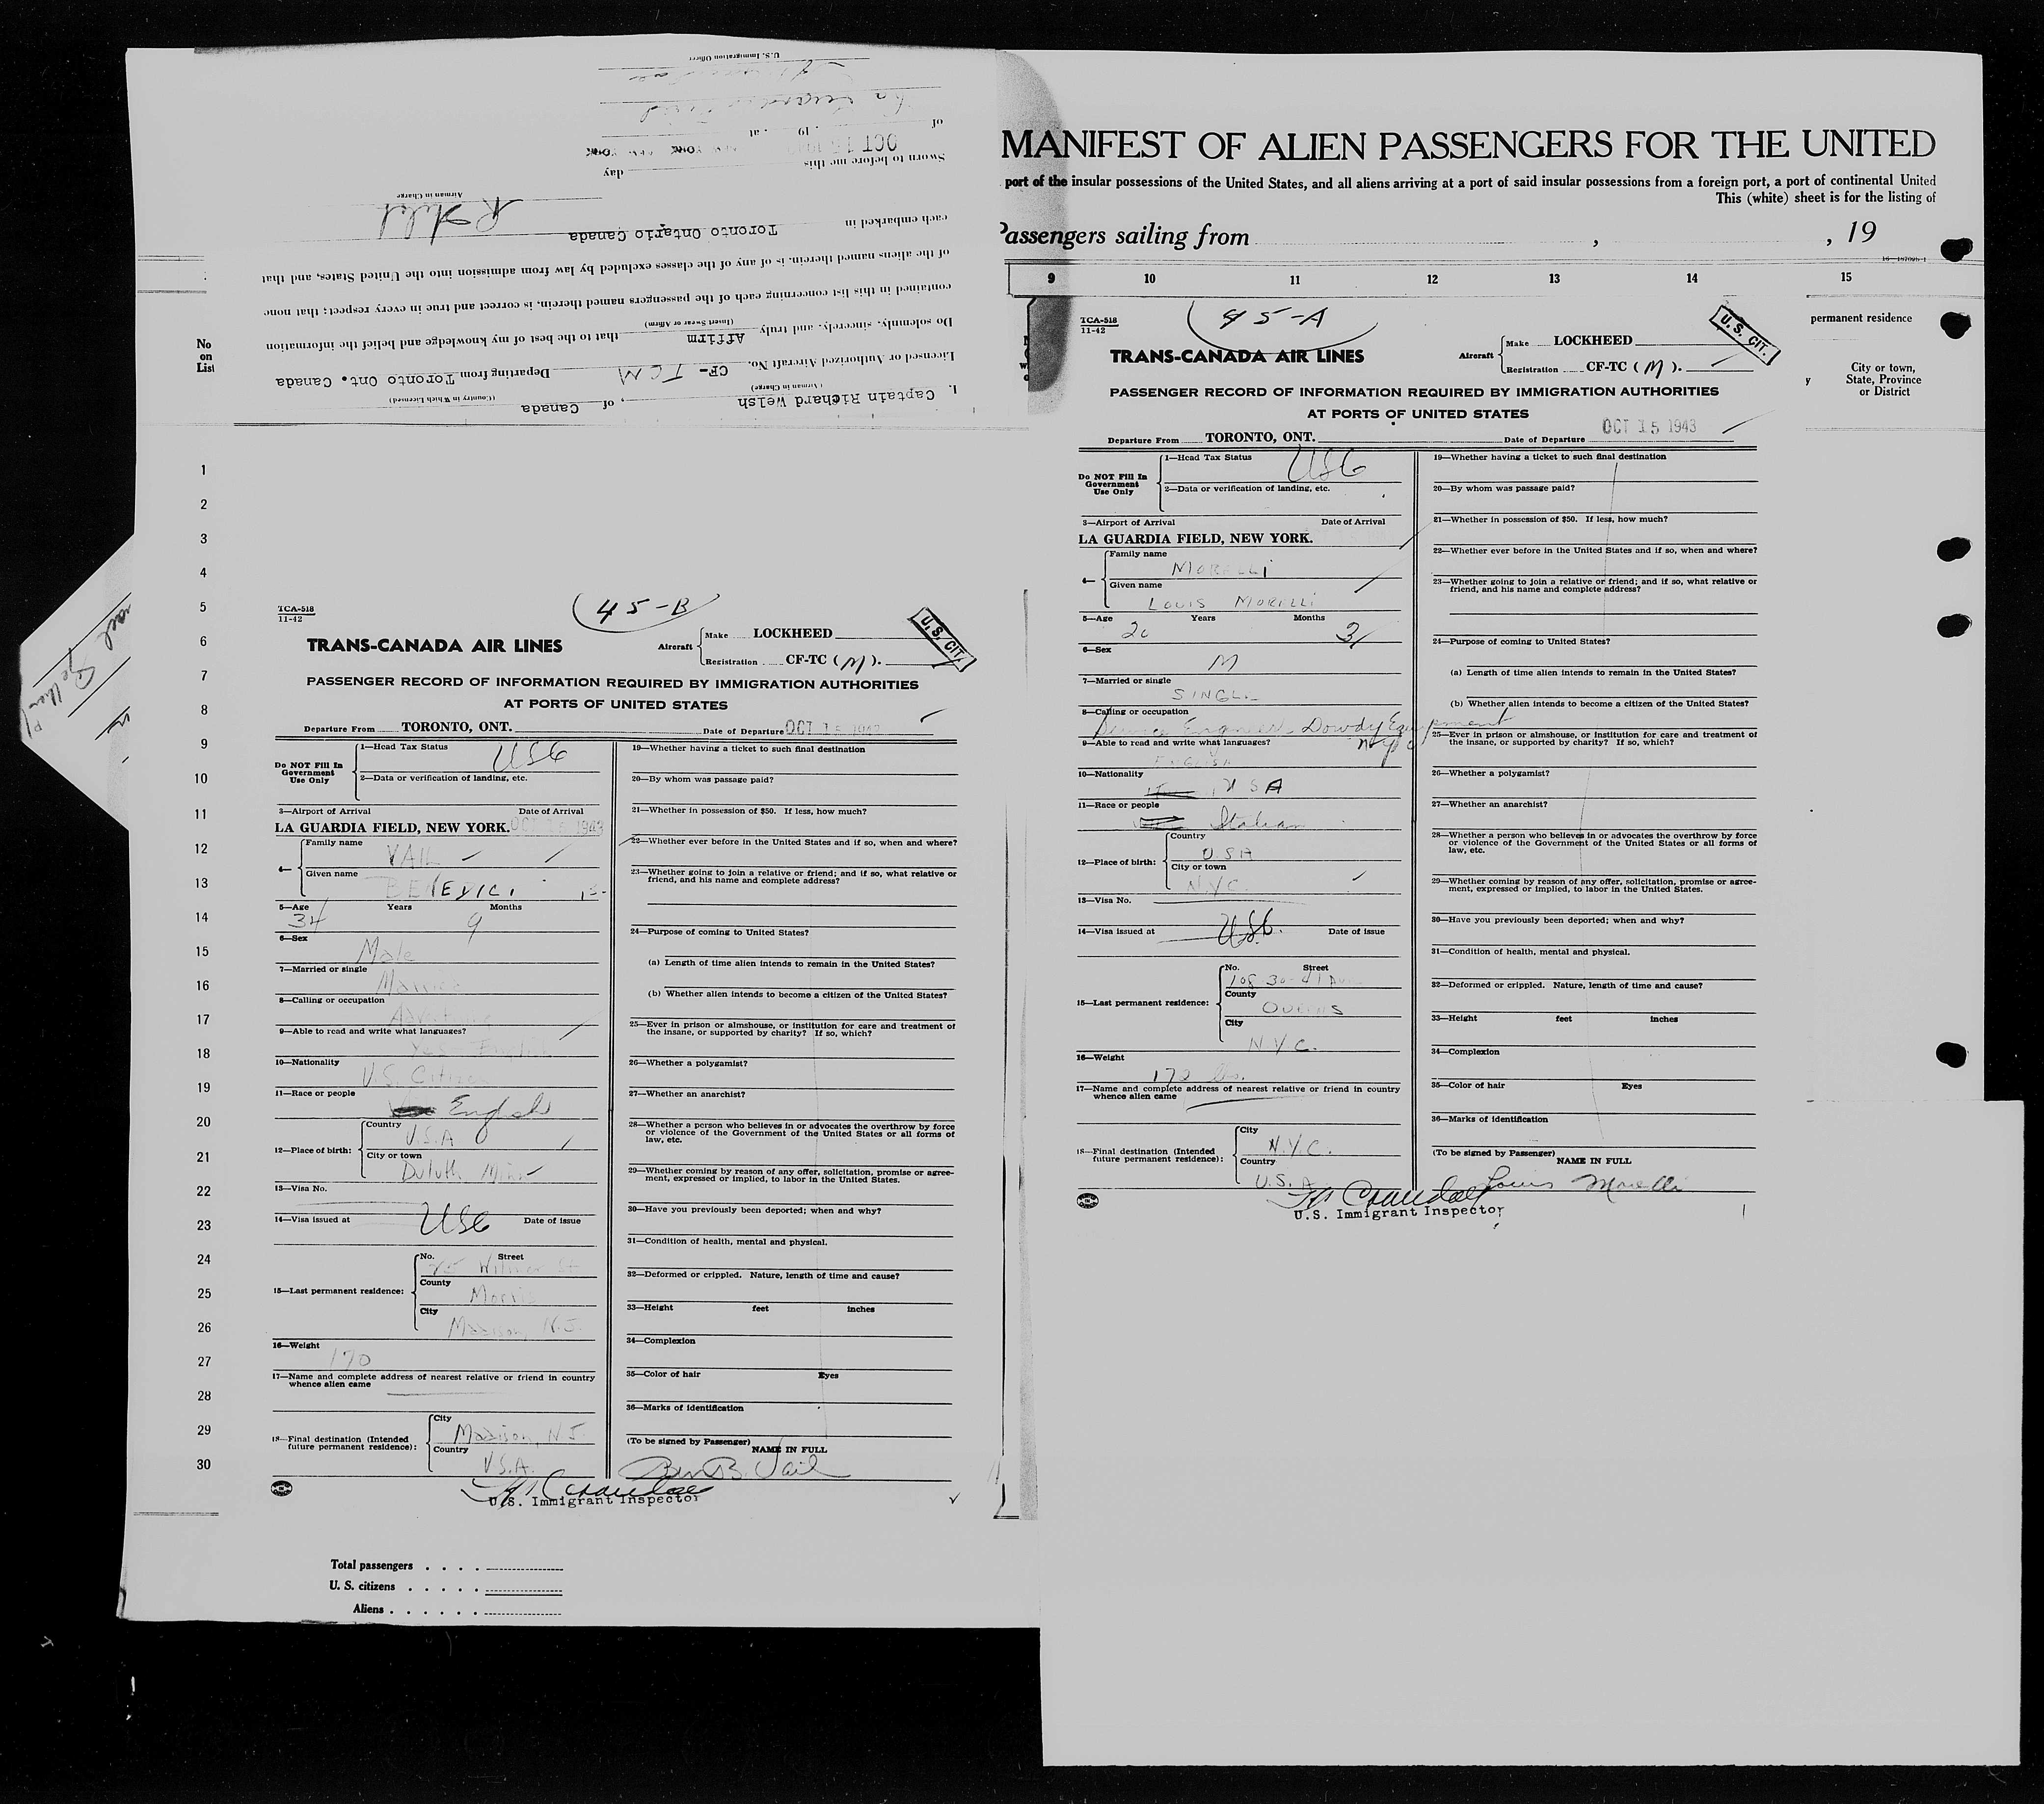 U.S. Immigration Officer
of
OCT 15 194
, 19 , at
Sworn to before me this
day
Airman in Charge
each embarked in Toronto Ontario Canada
of the aliens named therein, is of any of the classes excluded by law from admission into the United States, and that
contained in this list concerning each of the passengers named therein, is correct and true in every respect; that none
Do solemnly, sincerely, and truly Affirm that to the best of my knowledge and belief the information
(Insert Swear or Affirm)
Licensed or Authorized Aircraft No. CF- TCM Departing from Toronto Ont. Canada
I, Captain Richard Welsh, of Canada
(Airman in Charge)
(Country in Which Licensed)
No
on
List
1
2
3
4
5
6
7
8
9
10
11
12
13
14
15
16
17
18
19
20
21
22
23
24
25
26
27
28
29
30
TCA-518
11-42
45-B
TRANS-CANADA AIR LINES
Aircraft
Make LOCKHEED
Registration CF-TC (M).
U.S. CIT.
PASSENGER RECORD OF INFORMATION REQUIRED BY IMMIGRATION AUTHORITIES
AT PORTS OF UNITED STATES
Departure From TORONTO, ONT. Date of Departure OCT 15 1943
Do NOT Fill In
Government
Use Only
1—Head Tax Status USC
2—Data or verification of landing, etc.
3—Airport of Arrival Date of Arrival
LA GUARDIA FIELD, NEW YORK. OCT 15 1943
4—
Family name
VAIL
Given name
5—Age Years Months
34 9
6—Sex
Male
7—Married or single
8—Calling or occupation
9—Able to read and write what languages?
Yes English
10—Nationality
U.S. Citizen
11—Race or people
English
12—Place of birth:
Country
U.S.A
City or town
Duluth Minn
13—Visa No.
14—Visa issued at USC Date of issue
15—Last permanent residence:
No. Street
County
Morris
City
Madison, N.J.
16—Weight
170
17—Name and complete address of nearest relative or friend in country
whence alien came
18—Final destination (Intended
future permanent residence):
City
Madison, N.J.
Country
U.S.A.
U.S. Immigrant Inspector
19—Whether having a ticket to such final destination
20—By whom was passage paid?
21—Whether in possession of $50. If less, how much?
22—Whether ever before in the United States and if so, when and where?
23—Whether going to join a relative or friend; and if so, what relative or
friend, and his name and complete address?
24—Purpose of coming to United States?
(a) Length of time alien intends to remain in the United States?
(b) Whether alien intends to become a citizen of the United States?
25—Ever in prison or almshouse, or institution for care and treatment of
the insane, or supported by charity? If so, which?
26—Whether a polygamist?
27—Whether an anarchist?
28—Whether a person who believes in or advocates the overthrow by force
or violence of the Government of the United States or all forms of
law, etc.
29—Whether coming by reason of any offer, solicitation, promise or agree-
ment, expressed or implied, to labor in the United States.
30—Have you previously been deported; when and why?
31—Condition of health, mental and physical.
32—Deformed or crippled. Nature, length of time and cause?
33—Height feet inches
34—Complexion
35—Color of hair Eyes
36—Marks of identification
(To be signed by Passenger)
NAME IN FULL
Ben B. Vail
Total passengers
U. S. citizens
Aliens
MANIFEST OF ALIEN PASSENGERS FOR THE UNITED
port of the insular possessions of the United States, and all aliens arriving at a port of said insular possessions from a foreign port, a port of continental United
This (white) sheet is for the listing of
Passengers sailing from , , 19
9 10 11 12 13 14 15
permanent residence
City or town,
State, Province
or District
y
TCA-518
11-42
45-A
TRANS-CANADA AIR LINES
Aircraft
Make LOCKHEED
Registration CF-TC (M).
U.S. CIT.
PASSENGER RECORD OF INFORMATION REQUIRED BY IMMIGRATION AUTHORITIES
AT PORTS OF UNITED STATES
Departure From TORONTO, ONT. Date of Departure OCT 15 1943
Do NOT Fill In
Government
Use Only
1—Head Tax Status USC
2—Data or verification of landing, etc.
3—Airport of Arrival Date of Arrival
LA GUARDIA FIELD, NEW YORK.
4—
Family name
MORELLI
Given name
LOUIS MORELLI
5—Age Years Months
3
6—Sex
M
7—Married or single
SINGLE
8—Calling or occupation
Service Engineer Dowdy Equipment
NYC
9—Able to read and write what languages?
ENGLISH
10—Nationality
USA
11—Race or people
Italian
12—Place of birth:
Country
USA
City or town
N.Y.C.
13—Visa No.
14—Visa issued at USC. Date of issue
15—Last permanent residence:
No. Street
County
QUEENS
City
N.Y.C.
16—Weight
170 lbs.
17—Name and complete address of nearest relative or friend in country
whence alien came
18—Final destination (Intended
future permanent residence):
City
N.Y.C.
Country
U.S.A.
U.S. Immigrant Inspector
19—Whether having a ticket to such final destination
20—By whom was passage paid?
21—Whether in possession of $50. If less, how much?
22—Whether ever before in the United States and if so, when and where?
23—Whether going to join a relative or friend; and if so, what relative or
friend, and his name and complete address?
24—Purpose of coming to United States?
(a) Length of time alien intends to remain in the United States?
(b) Whether alien intends to become a citizen of the United States?
25—Ever in prison or almshouse, or institution for care and treatment of
the insane, or supported by charity? If so, which?
26—Whether a polygamist?
27—Whether an anarchist?
28—Whether a person who believes in or advocates the overthrow by force
or violence of the Government of the United States or all forms of
law, etc.
29—Whether coming by reason of any offer, solicitation, promise or agree-
ment, expressed or implied, to labor in the United States.
30—Have you previously been deported; when and why?
31—Condition of health, mental and physical.
32—Deformed or crippled. Nature, length of time and cause?
33—Height feet inches
34—Complexion
35—Color of hair Eyes
36—Marks of identification
(To be signed by Passenger)
NAME IN FULL
Louis Morelli